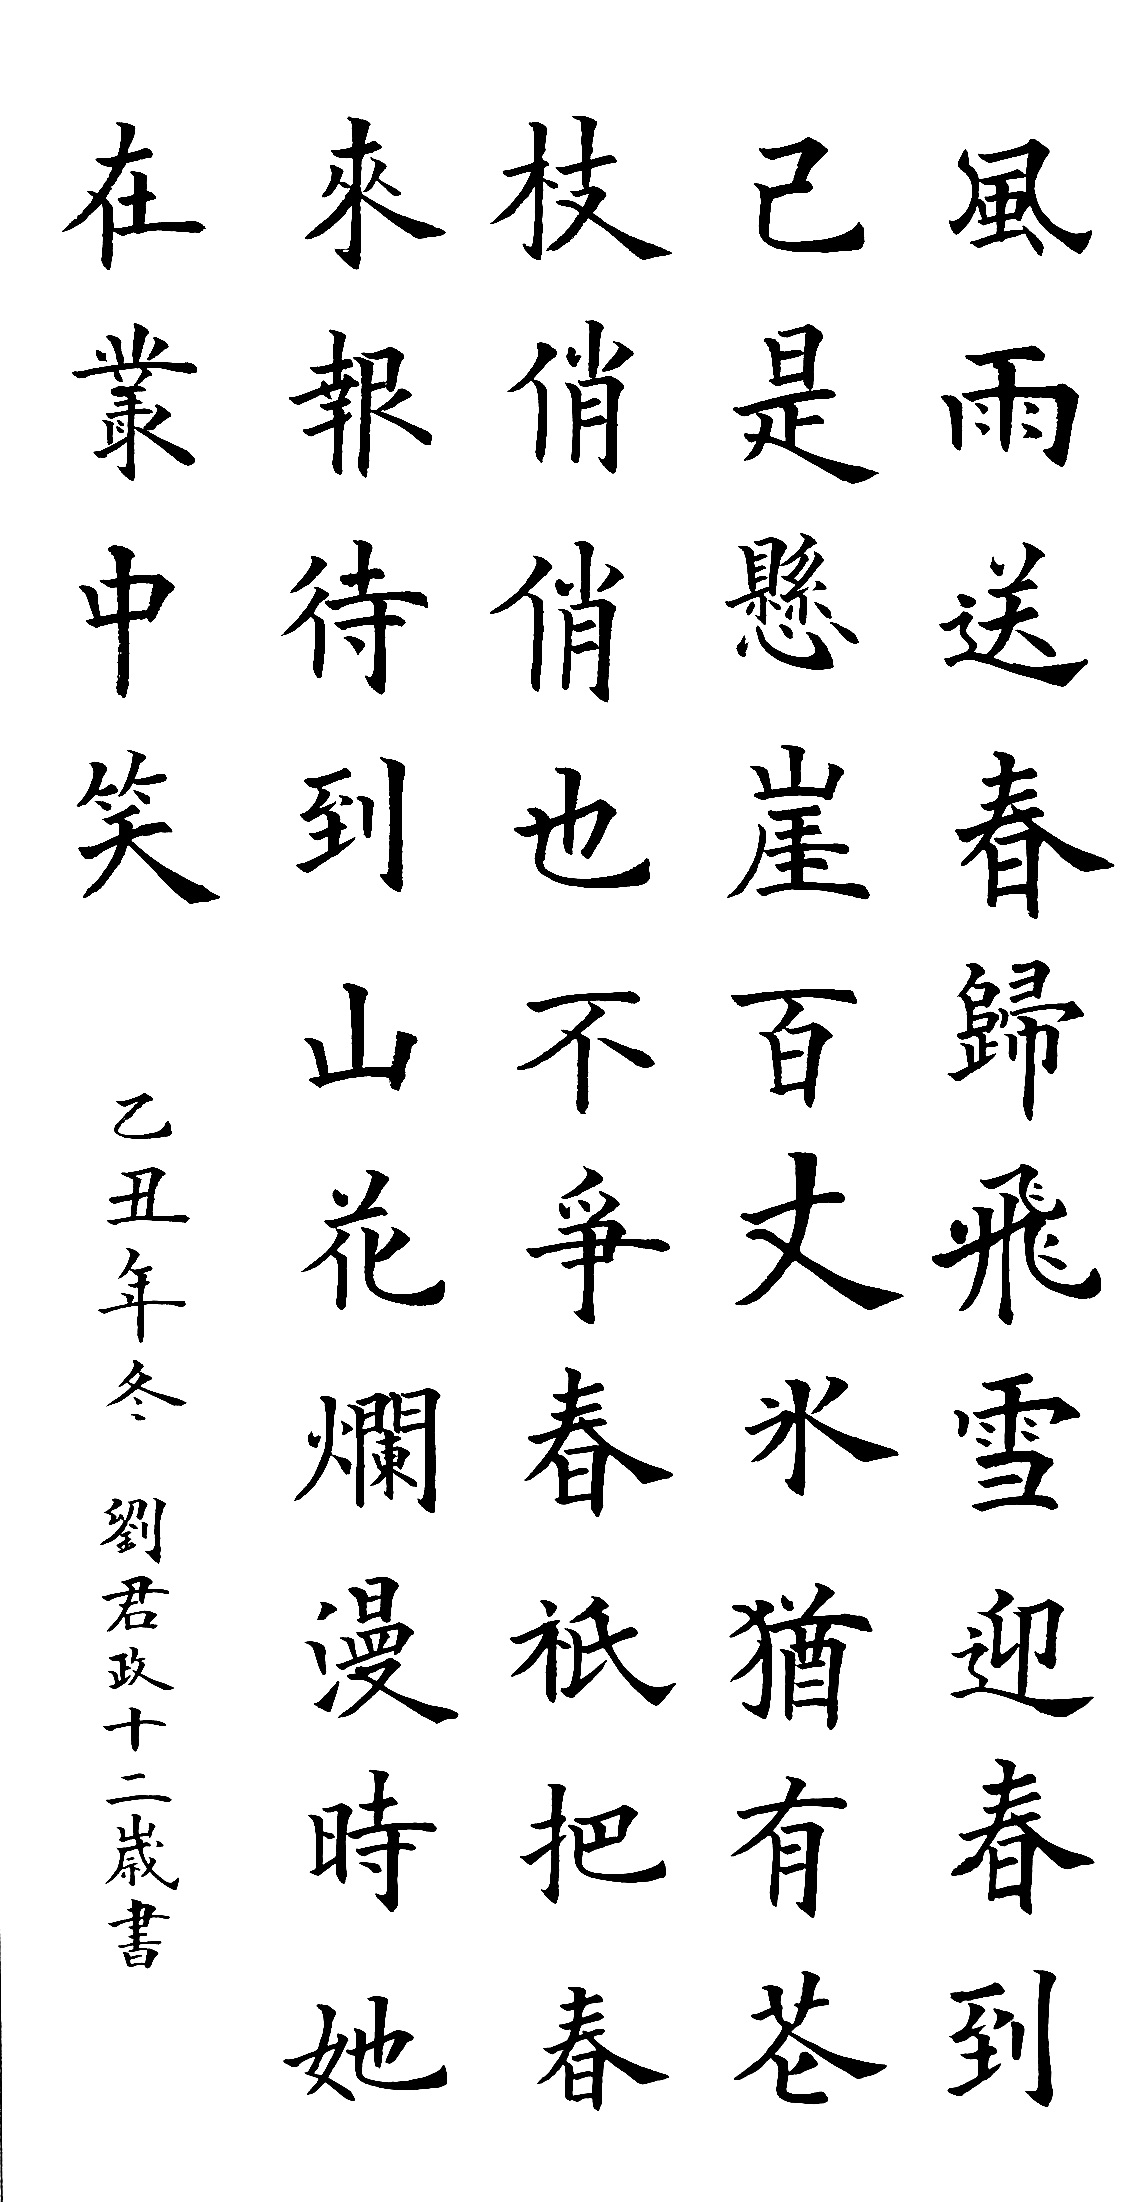 風雨送春歸飛雪迎春到
己是懸崖百丈氷猶有苍
枝俏俏也不爭春祇把春
來報待到山花爛漫時她
在叢中笑
乙丑年冬 劉君政十二歲書